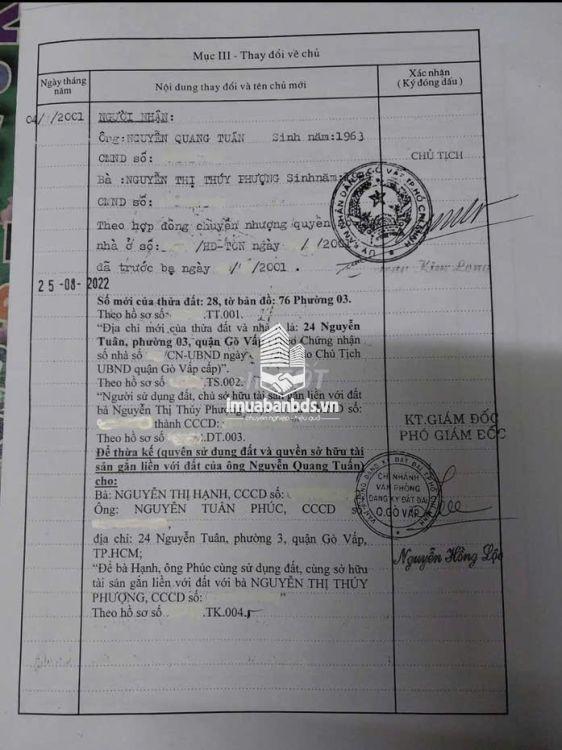 Mục III - Thay đổi về chủ
Ngày tháng năm
Nội dung thay đổi và tên chủ mới
Xác nhận
( Ký đóng dấu )
04/ /2001
NGƯỜI NHẬN:
Ông:NGUYỄN QUANG TUẤN Sinh năm:1963
CMND số:
Bà :NGUYỄN THỊ THÚY PHƯỢNG Sinhnăm:
CMND số:
Theo hợp đồng chuyển nhượng quyền
nhà ở số: /HĐ-TCN ngày / / 2001
đã trước bạ ngày / / 2001 .
CHỦ TỊCH
25-08-2022
Số mới của thửa đất: 28, tờ bản đồ: 76 Phường 03.
Theo hồ sơ số .TT.001.
"Địa chỉ mới của thửa đất và nhà là: 24 Nguyễn
Tuân, phường 03, quận Gò Vấp Chứng nhận
số nhà số /CN-UBND ngày Chủ Tịch
UBND quận Gò Vấp cấp)".
Theo hồ sơ số .TS.002.
"Người sử dụng đất, chủ sở hữu tài sản gắn liền với đất
bà Nguyễn Thị Thúy số:
thành CCCD:
Theo hồ sơ số .DT.003.
Để thừa kế (quyền sử dụng đất và quyền sở hữu tài
sản gắn liền với đất của ông Nguyễn Quang Tuấn)
cho:
Bà: NGUYỄN THỊ HẠNH, CCCD số:
Ông: NGUYỄN TUẤN PHÚC, CCCD số
địa chỉ: 24 Nguyễn Tuân, phường 3, quận Gò Vấp,
TP.HCM;
"Để bà Hạnh, ông Phúc cùng sử dụng đất, cùng sở hữu
tài sản gắn liền với đất với bà NGUYỄN THỊ THÚY
PHƯỢNG, CCCD số: "
Theo hồ sơ số .TK.004
KT.GIÁM ĐỐC
PHÓ GIÁM ĐỐC
CHI NHÁNH
VĂN PHÒNG
ĐĂNG KÝ ĐẤT ĐAI
Q.GÒ VẤP
Nguyễn Hồng Lộc
imuabanbds.vn